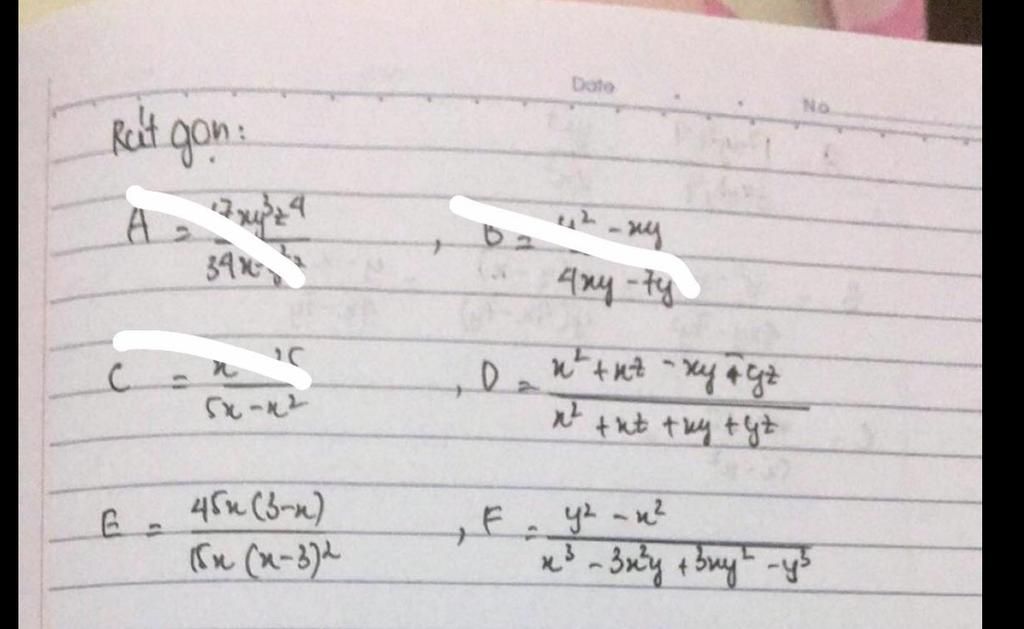 Date No
Rút gọn:
A = xy³z⁴ / 34x , B = y² - xy / 4xy - 7y
C = x / 5x - x² , D = x² + xz - xy - yz / x² + xz + xy + yz
E = 45x(3-x) / 15x(x-3)² , F = y² - x² / x³ - 3x²y + 3xy² - y³